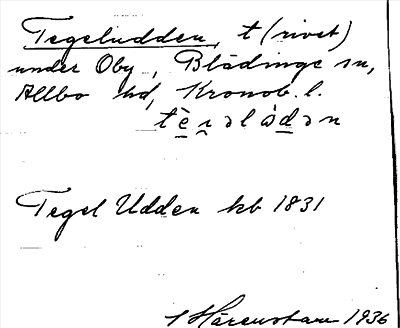 Tegeludden, t (rivet)
under Oby, Blädinge sn,
Allbo hd, Kronob. l.
Tegel Udden kb 1831
Härenstam 1936